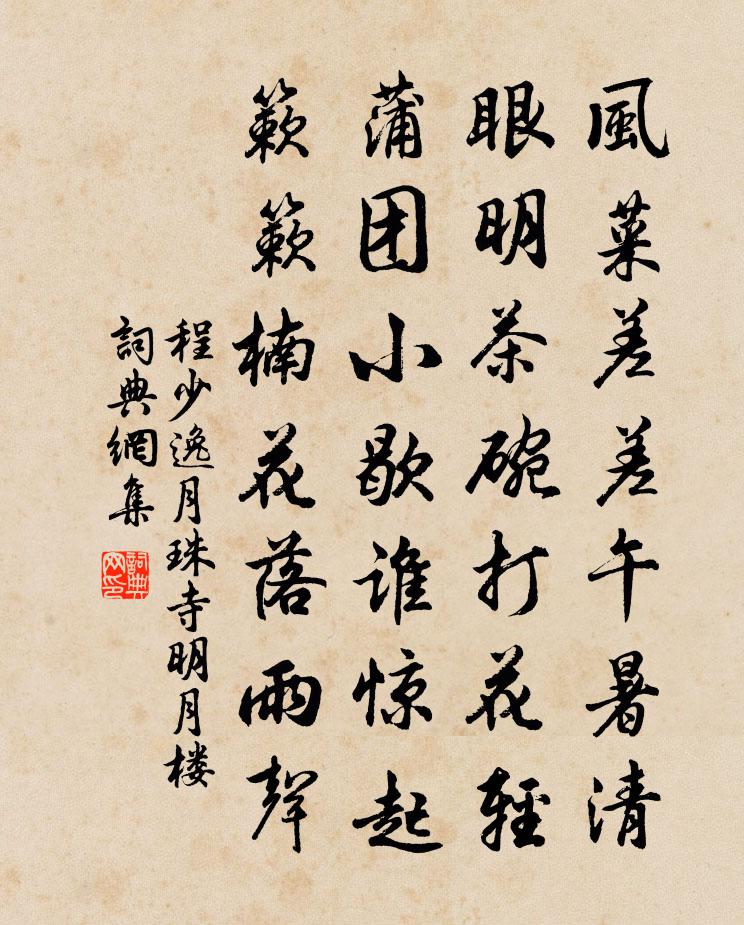 風葉差差午暑清
眼明茶碗打花輕
蒲团小歇誰惊起
簌簌楠花落雨聲
程少逸月珠寺明月楼
詞典網集
詞典网印